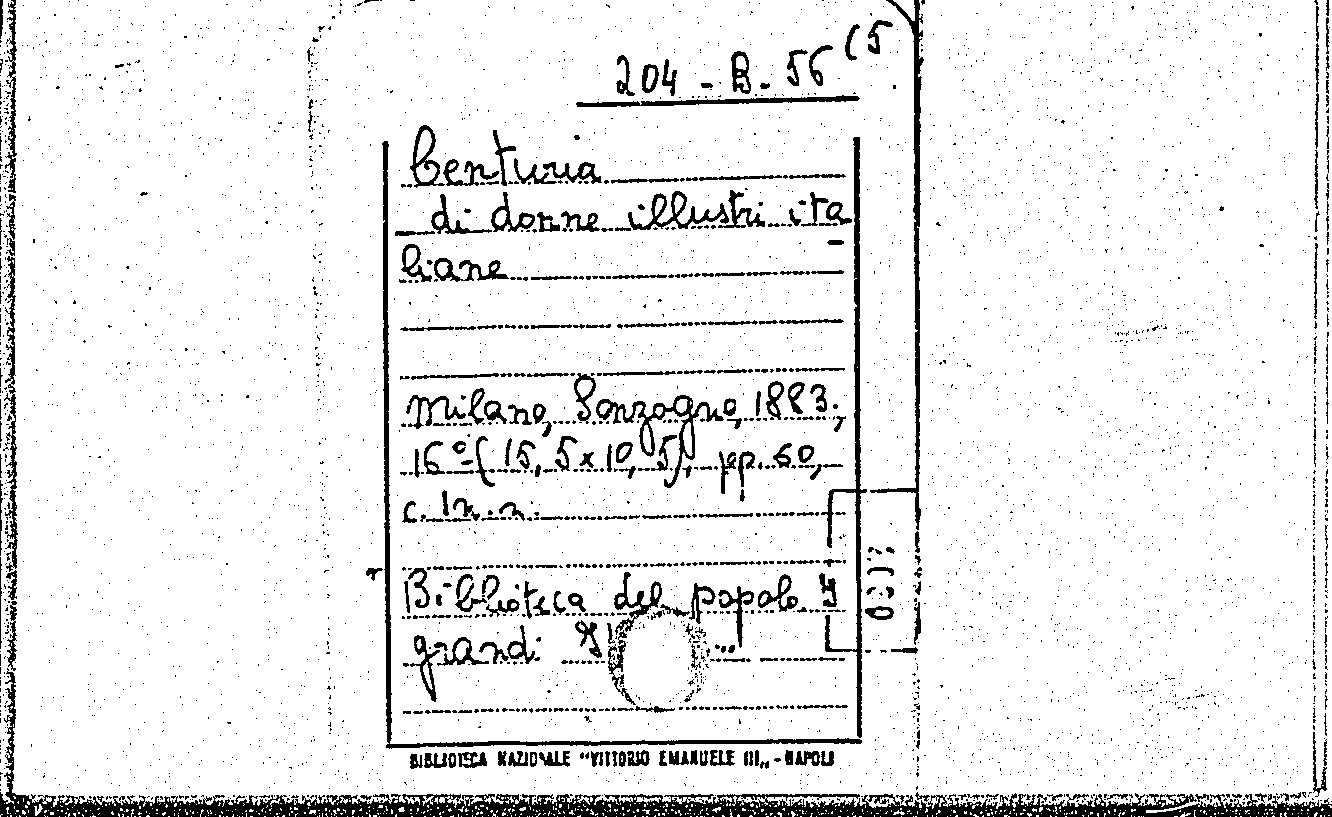 204 - B. 56 (5
Centuria
di donne illustri ita
liane
Milano, Sonzogno, 1883.,
16º (15,5x10,5), pp. 60,
c. 1 n. n.
Biblioteca del popolo. I
grandi
BIBLIOTECA NAZIONALE "VITTORIO EMANUELE III„ - NAPOLI